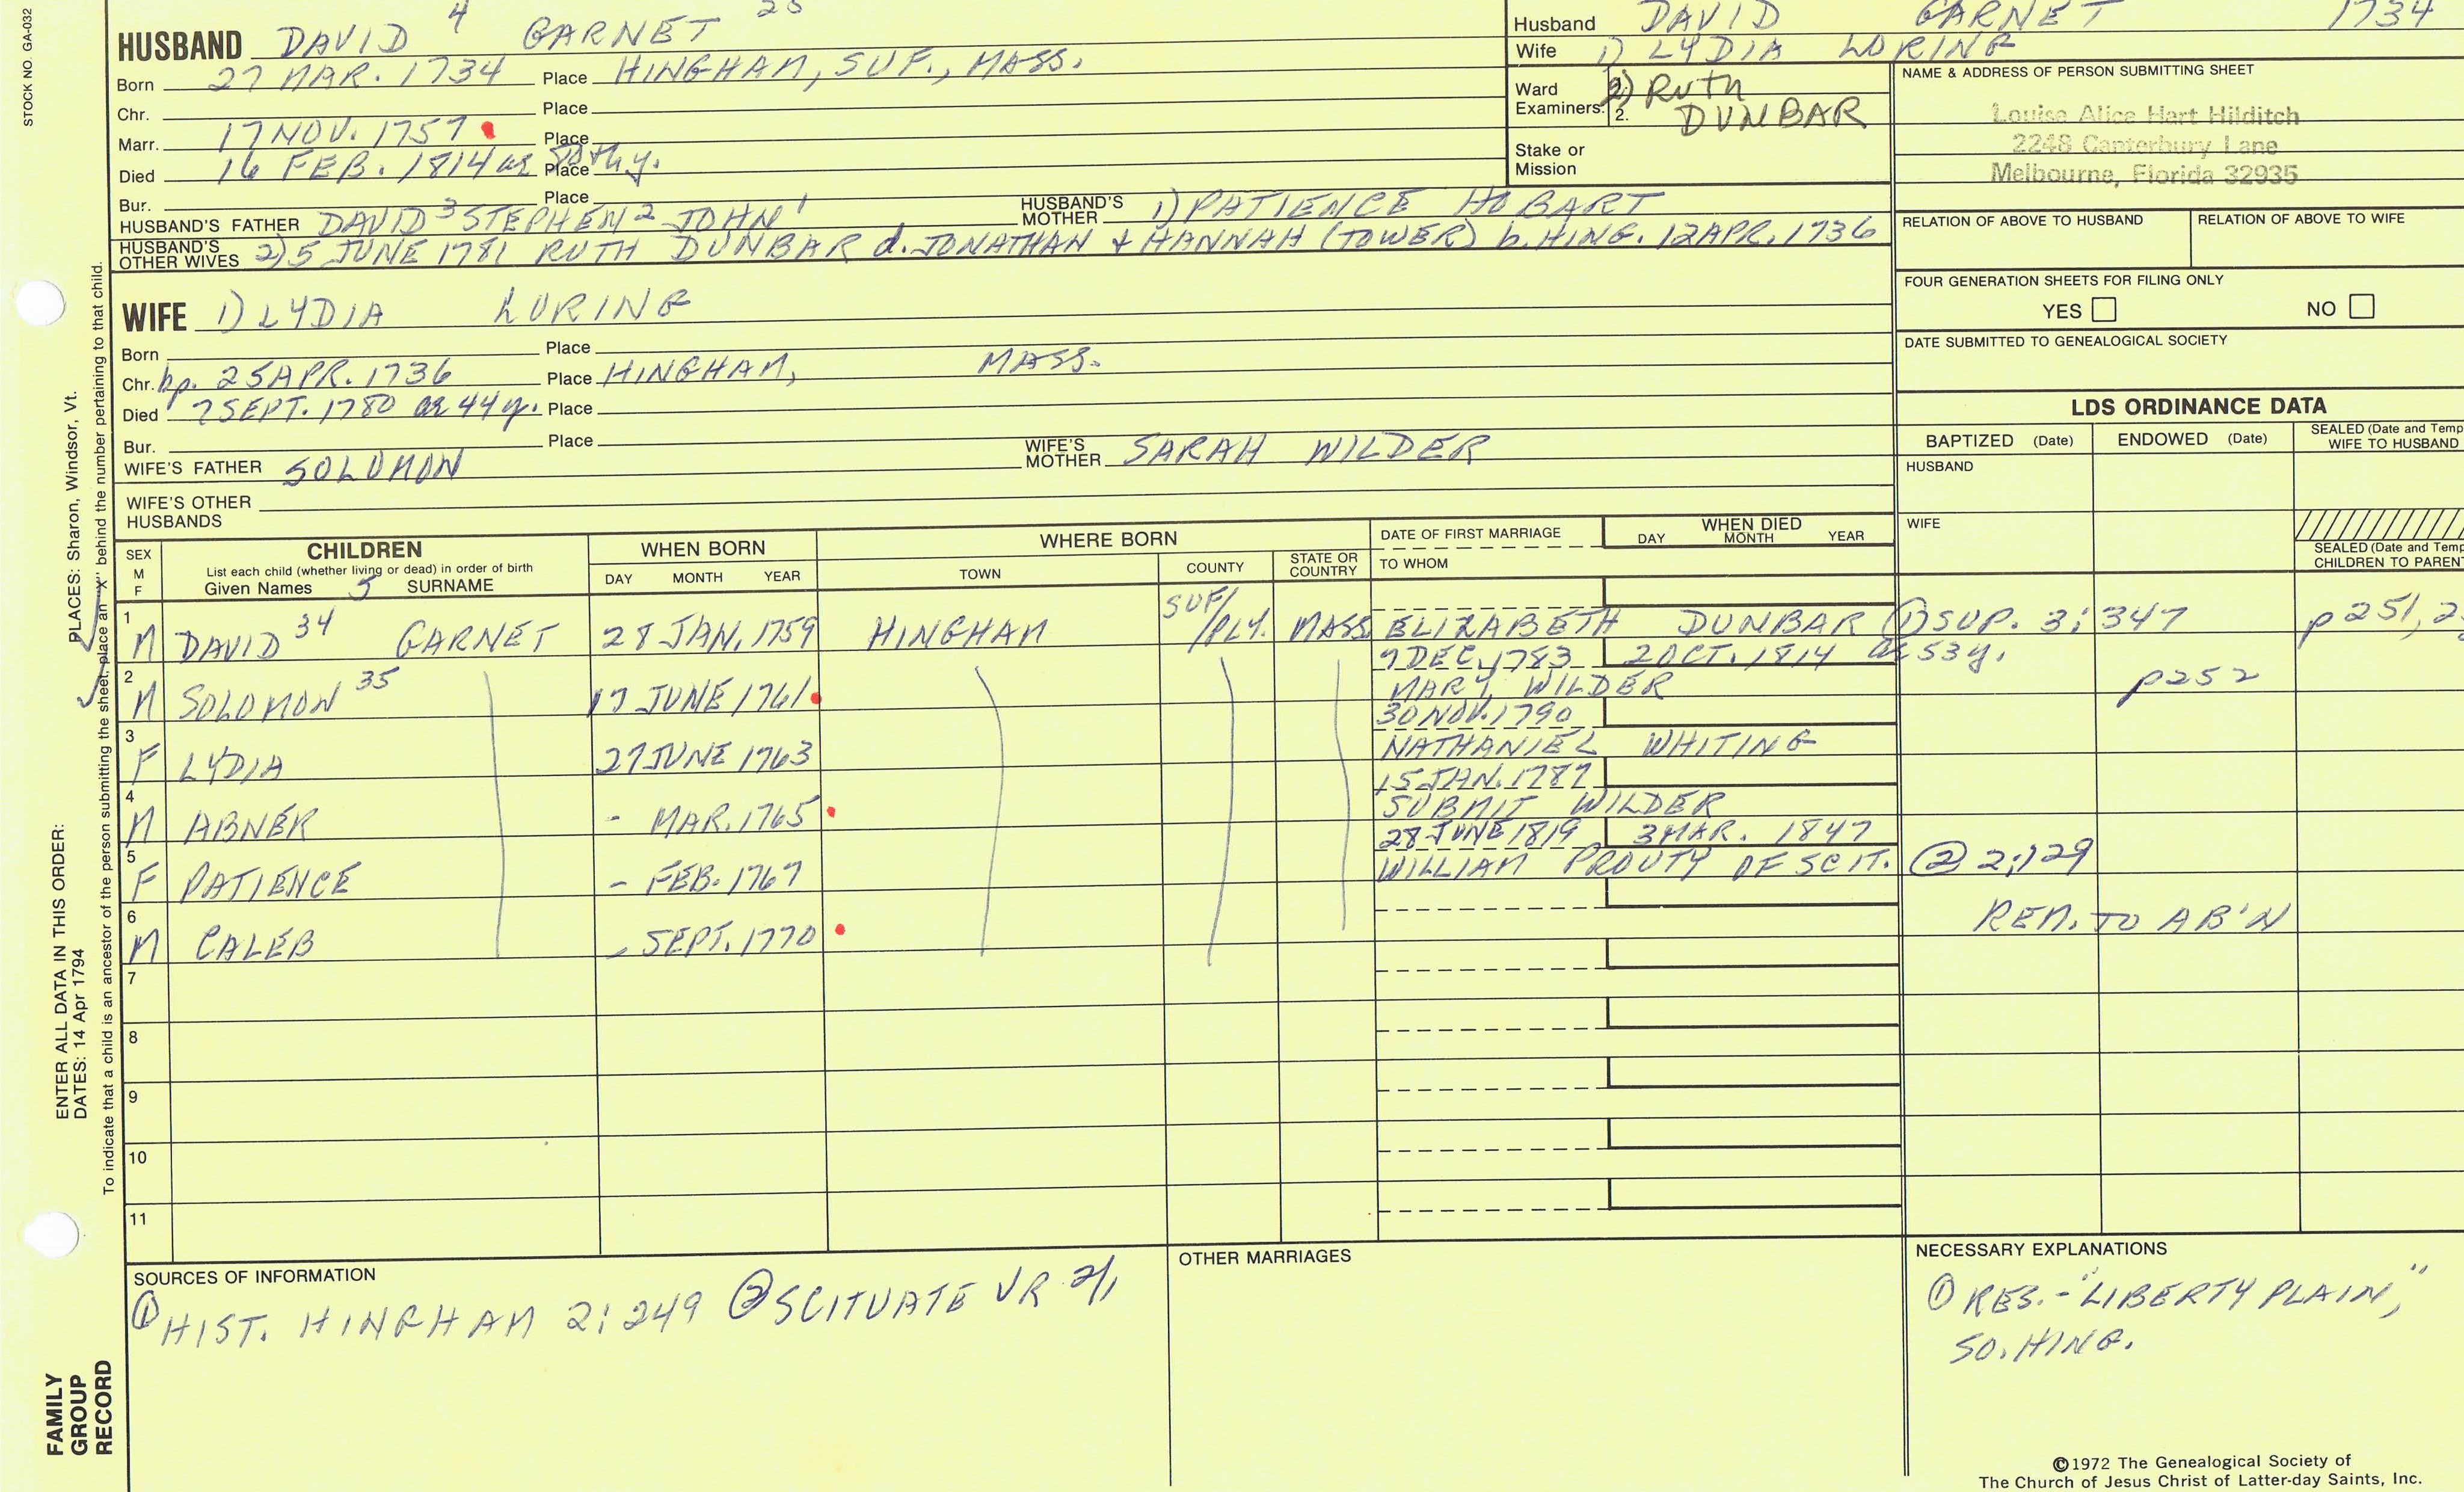 STOCK NO. GA-032
HUSBAND DAVID 4 GARNET 25
Born 27 MAR. 1734 Place HINGHAM, SUF., MASS.
Chr. Place
Marr. 17 NOV. 1757 Place
Died 16 FEB. 1814 ae 80thy. Place
Bur. Place
HUSBAND'S FATHER DAVID 3 STEPHEN 2 JOHN 1 HUSBAND'S MOTHER 1) PATIENCE HOBART
HUSBAND'S OTHER WIVES 2) 5 JUNE 1781 RUTH DUNBAR d. JONATHAN & HANNAH (TOWER) b. HING. 12 APR. 1736
Husband DAVID GARNET 1734
Wife 1) LYDIA LORING
Ward
Examiners: 2) Ruth
2. DUNBAR
Stake or
Mission
NAME & ADDRESS OF PERSON SUBMITTING SHEET
Louise Alice Hart Hilditch
2248 Canterbury Lane
Melbourne, Florida 32935
RELATION OF ABOVE TO HUSBAND RELATION OF ABOVE TO WIFE
FOUR GENERATION SHEETS FOR FILING ONLY
YES NO
DATE SUBMITTED TO GENEALOGICAL SOCIETY
WIFE 1) LYDIA LORING
Born Place
Chr. bp. 25 APR. 1736 Place HINGHAM, MASS.
Died 7 SEPT. 1780 ae 44 y. Place
Bur. Place
WIFE'S FATHER SOLOMON WIFE'S MOTHER SARAH WILDER
WIFE'S OTHER
HUSBANDS
LDS ORDINANCE DATA
BAPTIZED (Date) ENDOWED (Date) SEALED (Date and Temp
WIFE TO HUSBAND
HUSBAND
WIFE
SEALED (Date and Temp
CHILDREN TO PARENT
SEX
M
F
CHILDREN
List each child (whether living or dead) in order of birth
Given Names 5 SURNAME
WHEN BORN
DAY MONTH YEAR
WHERE BORN
TOWN COUNTY STATE OR COUNTRY
DATE OF FIRST MARRIAGE
TO WHOM
WHEN DIED
DAY MONTH YEAR
1 M DAVID 34 GARNET 28 JAN. 1759 HINGHAM SUF/PLY. MASS ELIZABETH DUNBAR ① SUP. 3:347 p 251, 2
2 M SOLOMON 35 17 JUNE 1761 7 DEC. 1783 2 OCT. 1814 ae 53 y.
MARY WILDER p 252
3 F LYDIA 27 JUNE 1763 30 NOV. 1790
NATHANIEL WHITING
4 M ABNER - MAR. 1765 15 JAN. 1787
SUBMIT WILDER
5 F PATIENCE - FEB. 1767 28 JUNE 1819 3 MAR. 1847
WILLIAM PROUTY OF SCIT. ② 2:129
6 M CALEB - SEPT. 1770 REM. TO AB'N
7
8
9
10
11
SOURCES OF INFORMATION
① HIST. HINGHAM 2:249 ② SCITUATE VR 2/1
OTHER MARRIAGES
NECESSARY EXPLANATIONS
① RES. - "LIBERTY PLAIN,"
SO. HING.
©1972 The Genealogical Society of
The Church of Jesus Christ of Latter-day Saints, Inc.
PLACES: Sharon, Windsor, Vt.
To indicate that a child is an ancestor of the person submitting the sheet, place an "X" behind the number pertaining to that child.
ENTER ALL DATA IN THIS ORDER:
DATES: 14 Apr 1794
FAMILY
GROUP
RECORD